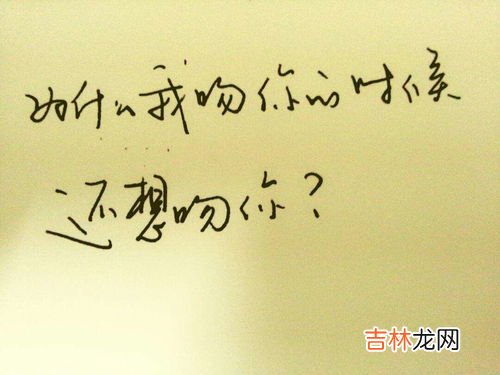 为什么我吻你的时候
还想吻你？
吉林龙网